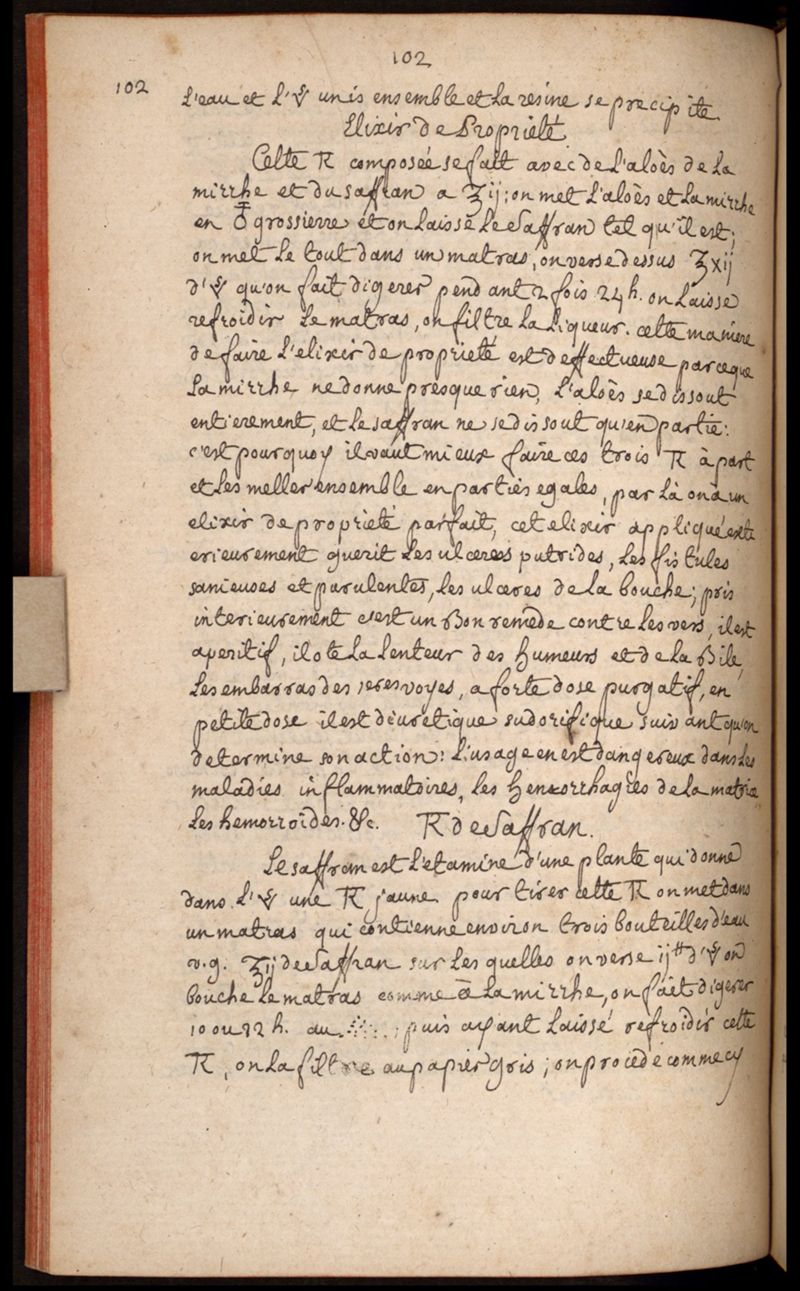 102
102
L'eau et L'🜈 unis ensemble et La resine se precipite
Elixir de Proprieté
Cette TR composée se fait avec de L'aloès de La
mirrhe et du saffran a ʒij; on met L'aloès et La mirrhe
en ♁ grossierre et on Laisse Le Saffran tel qu'il est;
on met Le tout dans un matras, on verse dessus ℥xij
d'🜈 qu'on fait digerer pendant 2 fois 24 h. on Laisse
refroidir Le matras, on filtre La Liqueur. cette maniere
de faire L'elixir de proprieté est deffectueuse parceque
La mirrhe ne donne presque rien, L'aloès se dissout
entierement, et Le saffran ne se dissout qu'en partie:
c'est pourquoy il vaut mieux faire ces trois TR à part
et Les meller ensemble en parties egales, par Là on a un
elixir de proprieté parfait, cet elixir appliqué exte
erieurement guerit Les ulceres putrides, Les fistules
sanieuses et parulentes, Les ulceres de La bouche; pris
interieurement c'est un Bon remede contre Les vers, il est
aperitif, il ote La Lenteur des Humeurs et de La Bile,
Les embarras des 1eres voyes, a forte dose purgatif, en
petite dose il est diuretique sudorifique suivant qu'on
determine son action: L'usage en est dangereux dans Les
maladies inflammatoires, Les Hemorrhagies de La matrice
Les hemorroïdes. &c. TR de Saffran.
Le saffran est L'etamine d'une plante qui donne
dans L'🜈 une TR jaune. pour tirer cette TR on met dans
un matras qui contienne environ trois bouteilles d'eau
v.g. ℥ij de Saffran sur Les quelles on verse ij℔ d'🜈 on
bouche Le matras comme à La mirrhe, on fait digerer
10 ou 12 h. au .:.:. ; puis ayant Laissé refroidir cette
TR, on La filtre au papier gris; on procede comme cy